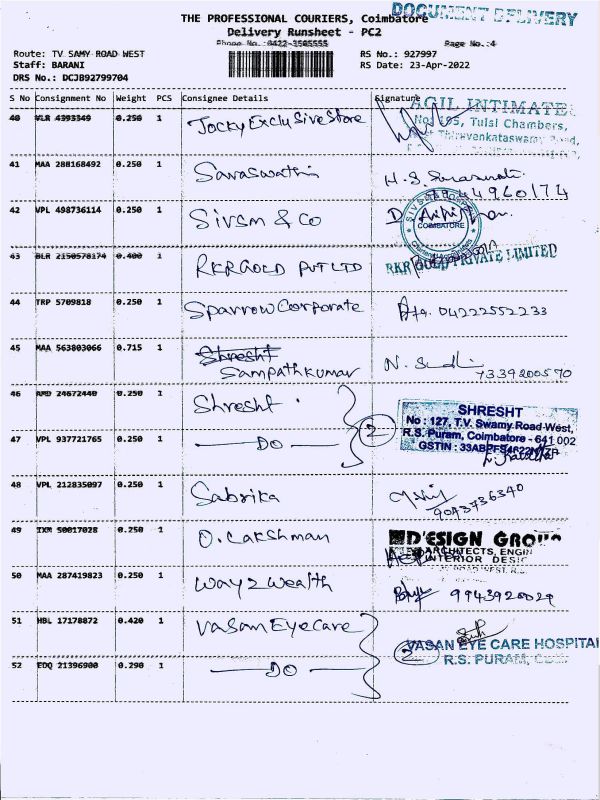 THE PROFESSIONAL COURIERS, Coimbatore
DOCUMENT DELIVERY
Delivery Runsheet - PC2
Phone No.:0422-3505555
Page No.:4
Route: TV SAMY ROAD WEST
Staff: BARANI
DRS No.: DCJB92799704
RS No.: 927997
RS Date: 23-Apr-2022
S No Consignment No Weight PCS Consignee Details Signature
40 VLR 4393349 0.250 1 Jocky Exclusive Store
AGIL INTIMATE
No: 105, Tulsi Chambers,
Thiruvenkataswamy Road,
41 MAA 288168492 0.250 1 Saraswathi H.S. Saraswathi
42 VPL 498736114 0.250 1 Sivsm & Co
COIMBATORE
43 BLR 2150578174 0.400 1 RKR GOLD PVT LTD
RKR GOLD PRIVATE LIMITED
44 TRP 5709818 0.250 1 Sparrow Corporate 04222552233
45 MAA 563803066 0.715 1 Shresht
Sampathkumar
7339200570
46 AMD 24672440 0.250 1 Shresht
47 VPL 937721765 0.250 1 DO 2
SHRESHT
No : 127, T.V. Swamy Road West,
R.S. Puram, Coimbatore - 641 002
GSTIN :
48 VPL 212835097 0.250 1 Sabrika
9043736340
49 IXM 50017028 0.250 1 O. Lakshman
D'ESIGN GROUP
ARCHITECTS, ENGIN
INTERIOR DESIG
50 MAA 287419823 0.250 1 Way 2 Wealth 9943920029
51 HBL 17178872 0.420 1 Vasan Eye Care
VASAN EYE CARE HOSPITAL
52 EDQ 21396900 0.290 1 DO 2
R.S. PURAM,